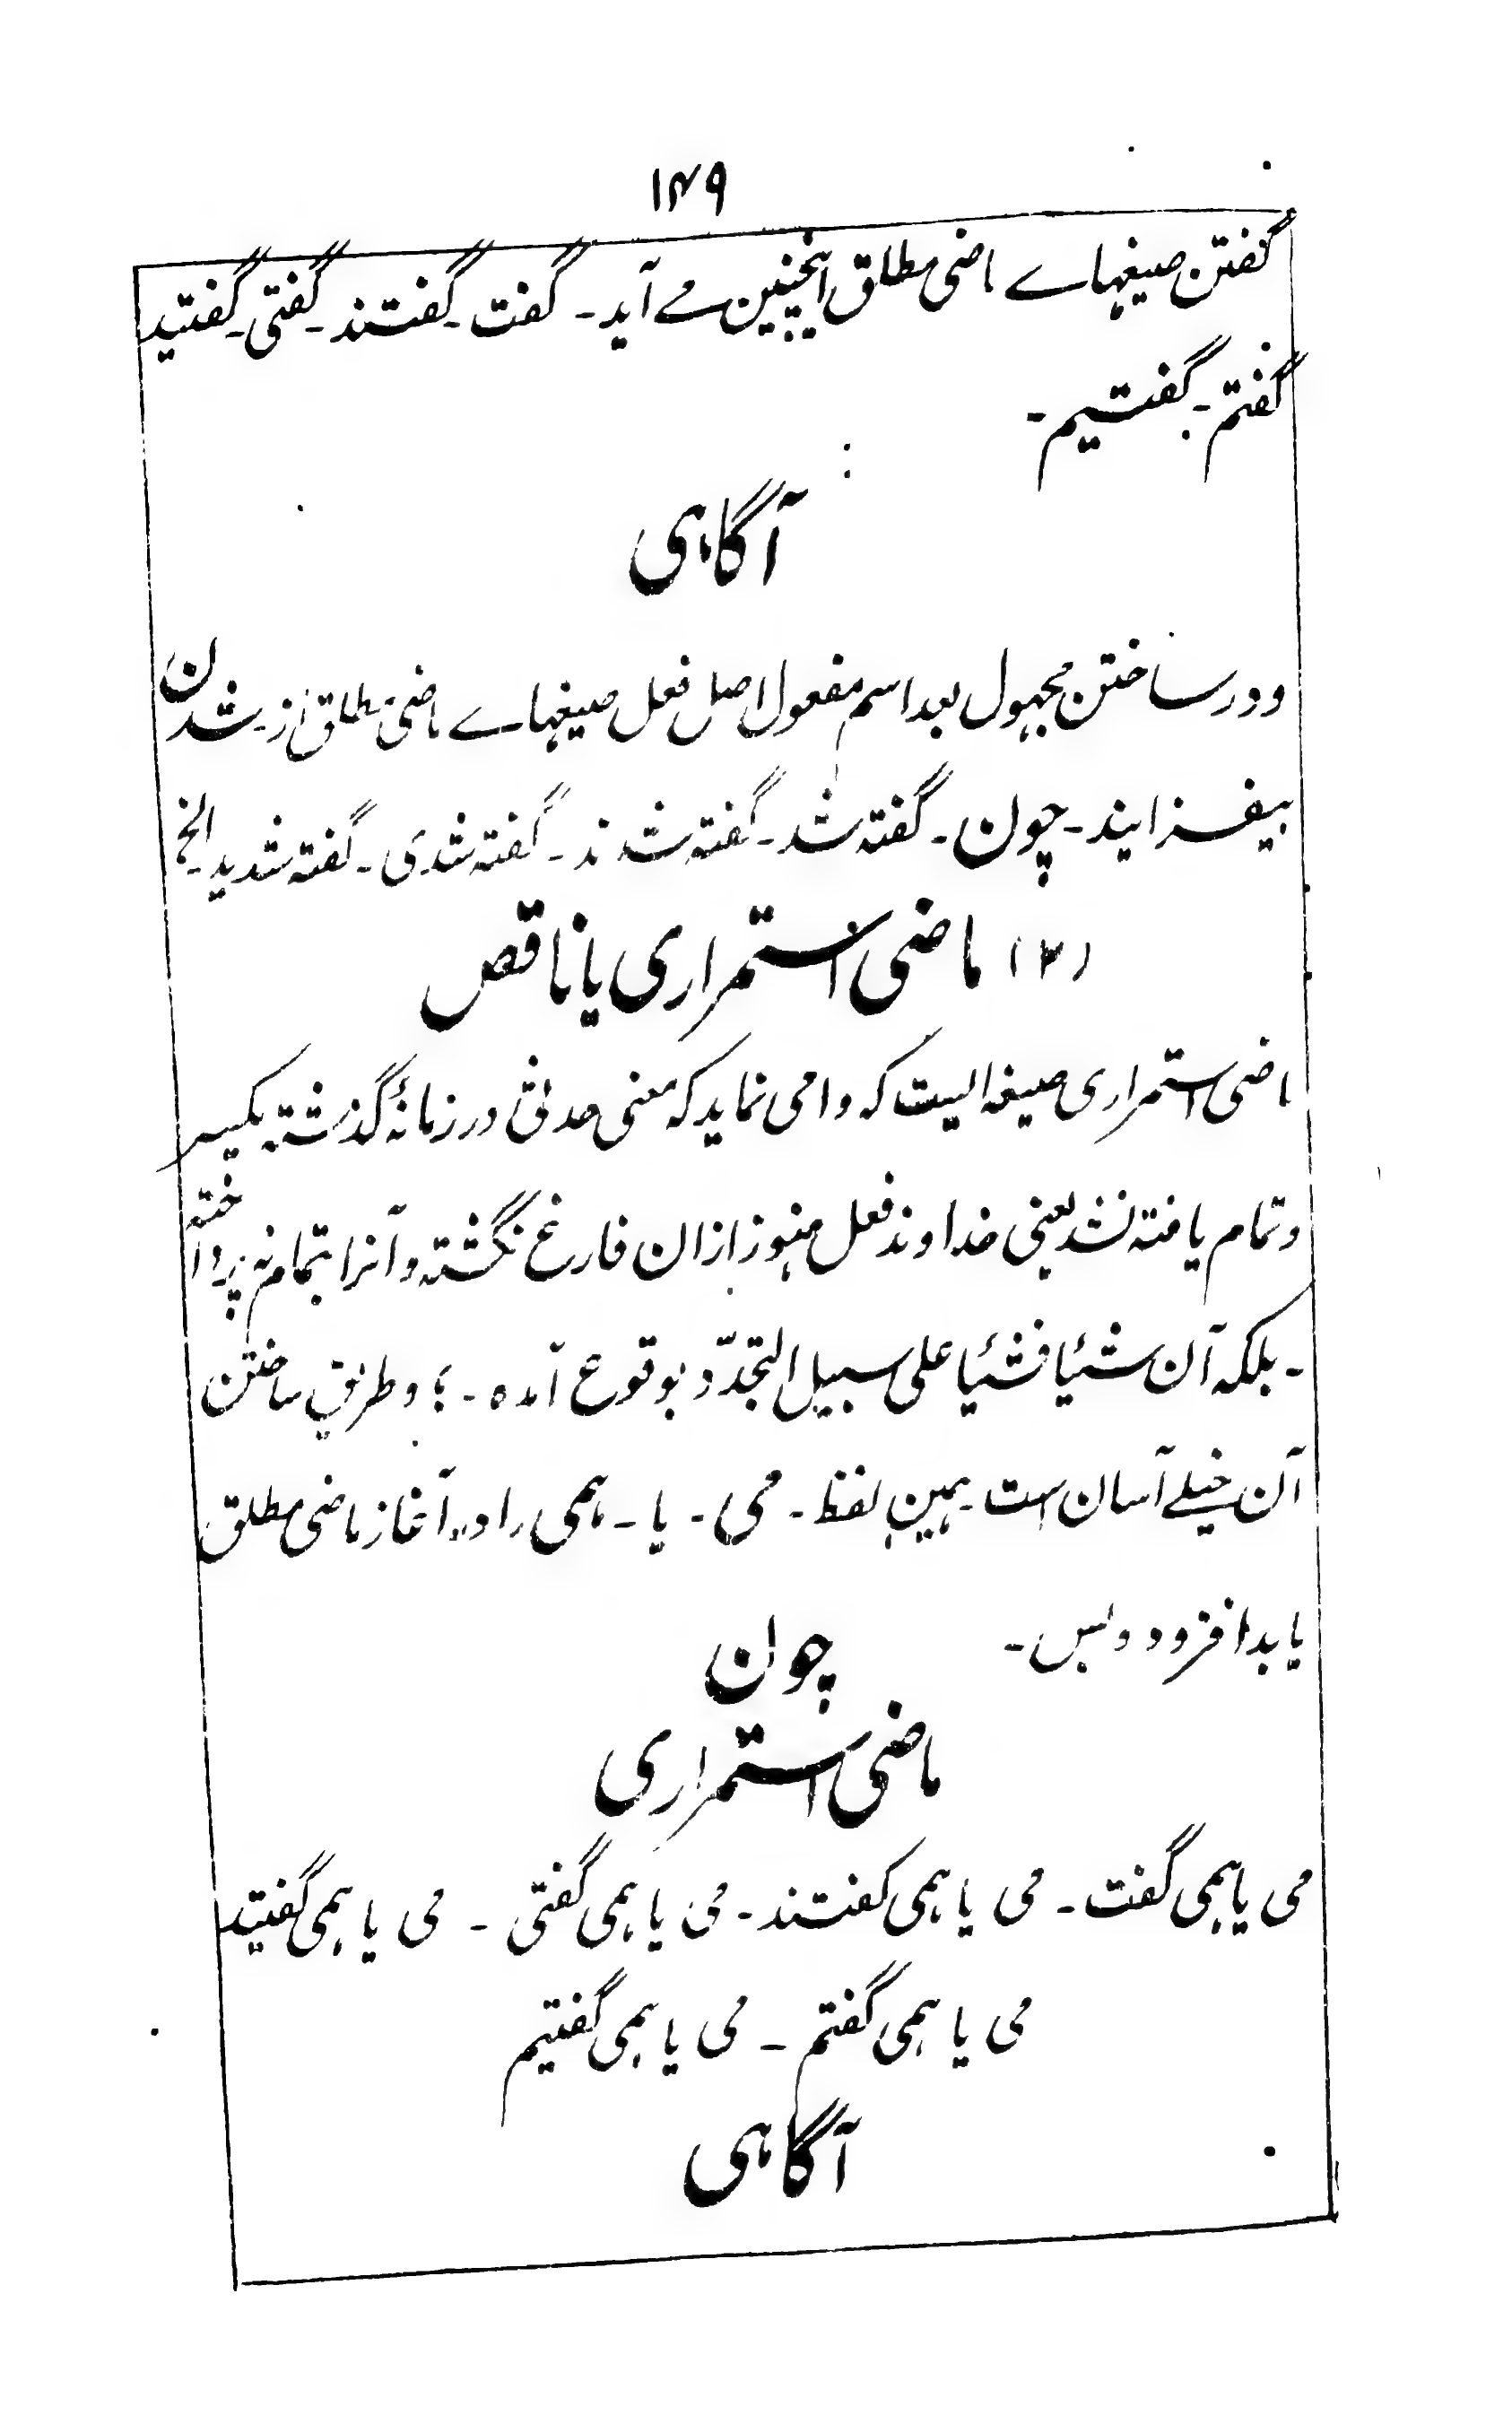 ۱۴۹
گفتن صیغہاے ماضی مطلق اینچنین مے آید ۔ گفت ۔ گفتند ۔ گفتی ۔ گفتید
گفتم ۔ گفتیم ۔
آگاہی
و در ساختن مجہول بعد اسم مفعول اصل فعل صیغہاے ماضی مطلق از شدن
بیفزایند ۔ چون ۔ گفتہ شد ۔ گفتہ شدند ۔ گفتہ شدی ۔ گفتہ شدید الخ
(۲) ماضی استمراری یا ناقص
ماضی استمراری صیغہ ایست کہ وا می نماید کہ معنی حدثی در زمانۂ گذشتہ یکسر
و تمام یافتہ نشد یعنی خداوند فعل ہنوز ازان فارغ نگشتہ و آنرا بتمام نہ پرداختہ
۔ بلکہ آن شئیا فشئیا علی سبیل التجدّد بوقوع آمدہ ۔ ؛ و طریق ساختن
آن خیلے آسان است ہمین لفظ ۔ می ۔ یا ۔ ہمی را در آغاز ماضی مطلق
باید افزود و بس ۔
چون
ماضی استمراری
می یا ہمی گفت ۔ می یا ہمی گفتند ۔ می یا ہمی گفتی ۔ می یا ہمی گفتید
می یا ہمی گفتم ۔ می یا ہمی گفتیم
آگاہی